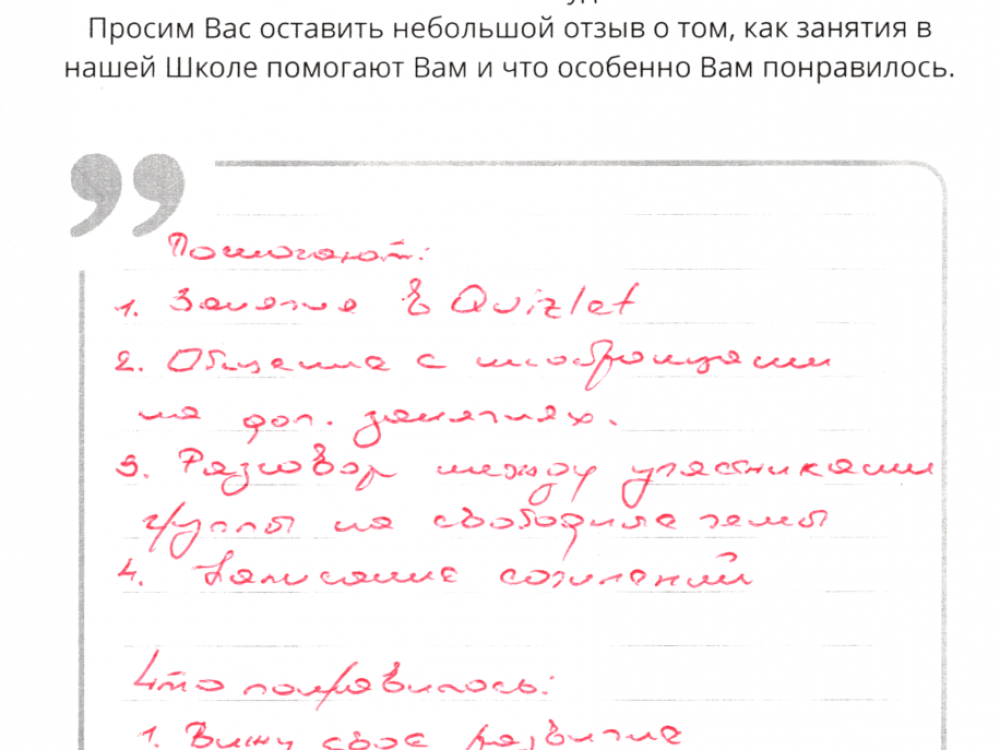 Просим Вас оставить небольшой отзыв о том, как занятия в
нашей Школе помогают Вам и что особенно Вам понравилось.
Помогают:
1. Занятие в Quizlet
2. Общение с иностранцами
на доп. занятиях.
3. Разговор между участниками
группы на свободные темы
4. Написание сочинений
Что понравилось:
1. Вижу свое развитие